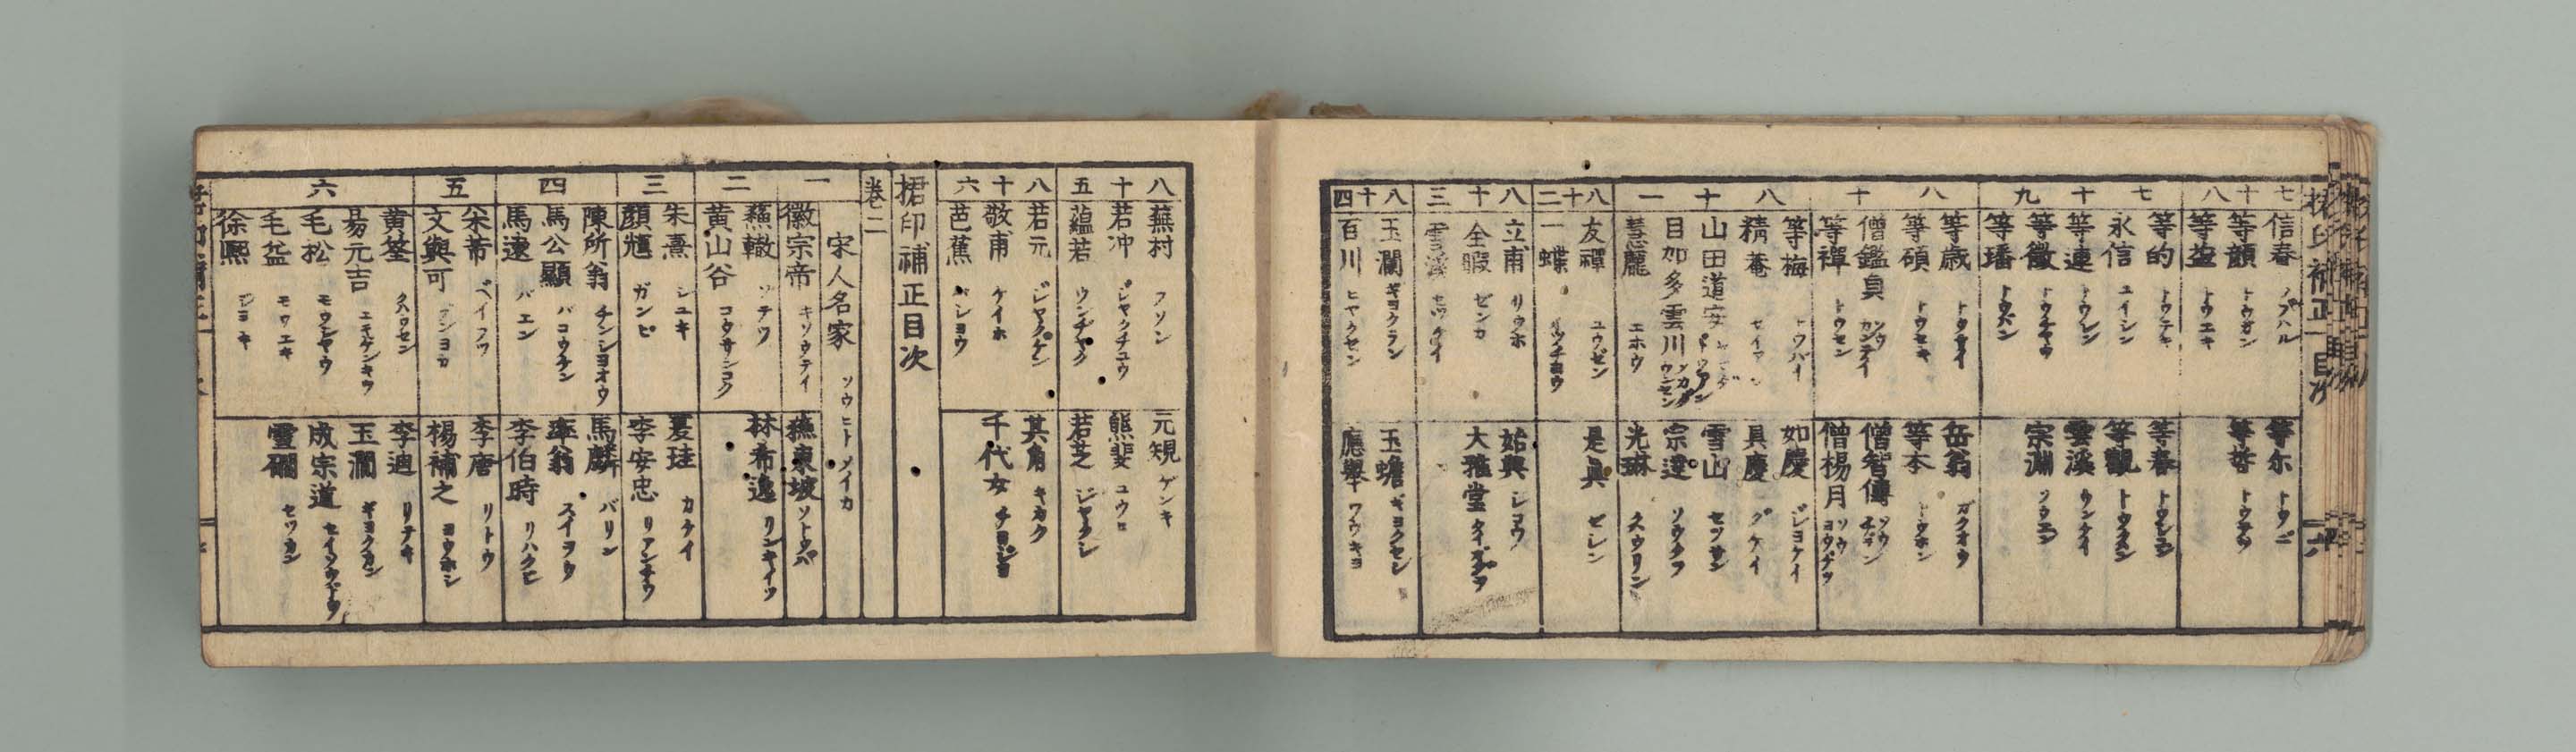 七十八
信春 ノブハル
等顔 トウガン
等益 トウエキ
等尓 トウニ
等哲 トウテツ
七十九
等的 トウテキ
永信 エイシン
等連 トウレン
等徴 トウチヤウ
等璠 トウハン
等春 トウシユン
等觀 トウクハン
雲溪 ウンケイ
宗淵 ソウエン
八十
等歳 トウサイ
等碩 トウセキ
僧鑑貞 ソウカンテイ
等禪 トウセン
岳翁 ガクオウ
等本 トウホン
僧智傳 ソウチデン
僧楊月 ソウヨウゲツ
八十一
等梅 トウバイ
精菴 セイアン
山田道安
目加多雲川
慧龍 エホウ
如慶 ジヨケイ
具慶 グケイ
雪山 セツサン
宗達 ソウタツ
光琳 クハウリン
八十二
友禪 ユウゼン
一蝶 イツチヨウ
是眞 ゼシン
八十三
立甫 リウホ
全暇 ゼンカ
雪溪 セツケイ
始興 シコウ
大雅堂 タイガダウ
八十四
玉瀾 ギヨクラン
百川 ヒヤクセン
玉蟾 ギヨクセン
應擧 ワウキヨ
八十五
蕪村 フソン
若冲 ジヤクチユウ
蘊若 ウンヂヤク
元規 ゲンキ
熊斐 ユウヒ
若芝 ジヤクシ
八十六
若元 ジヤクゲン
敬甫 ケイホ
芭蕉 バシヨウ
其角 キカク
千代女 チヨジヨ
捃印補正目次
卷二
宋人名家 ソウヒトメイカ
一
徽宗帝 キソウテイ
蘇東坡 ソトウバ
二
蘇轍 ソテツ
黄山谷 コウサンコク
林希逸 リンキイツ
三
朱熹 シユキ
顔煇 ガンヒ
夏珪 カケイ
李安忠 リアンチウ
四
陳所翁 チンシヨオウ
馬公顯 バコウケン
馬遠 バエン
馬麟 バリン
率翁
李伯時 リハクシ
五
米芾 ベイフツ
文與可 ブンヨカ
李唐 リトウ
楊補之 ヨウホシ
六
黄筌 クハウセン
易元吉 エキゲンキツ
毛松 モウシヤウ
毛益 モウエキ
徐熙 ジヨキ
李迪 リテキ
玉澗 ギヨクカン
成宗道 セイソウドウ
雪磵 セツカン